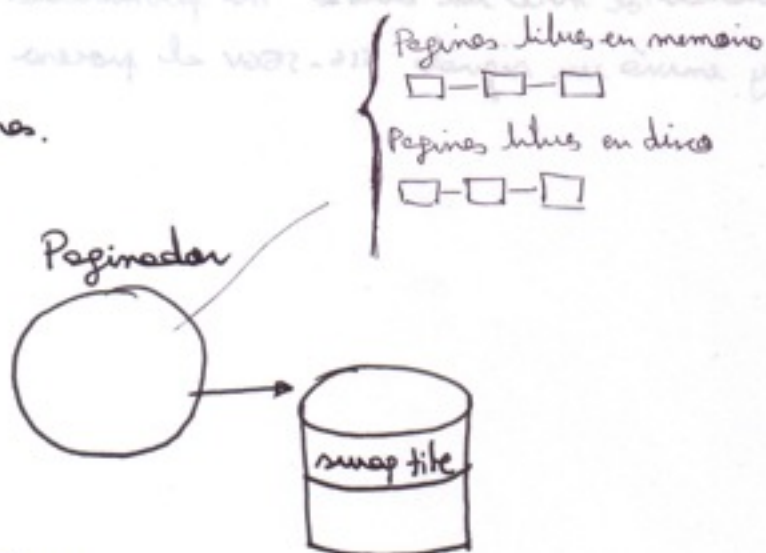 Paginas libres en memoria
Paginas libres en disco
es.
Paginador
swap file